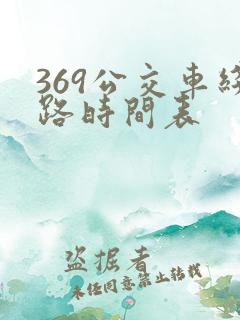 369公交車綫
路時間表
盗掘者
未经同意禁止转载